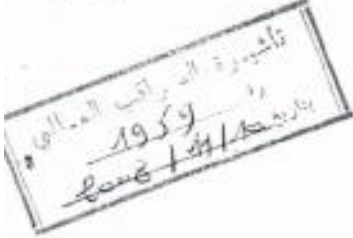 تأشيرة المراقب المالي
رقم 1959
بتاريخ 10/11/2003